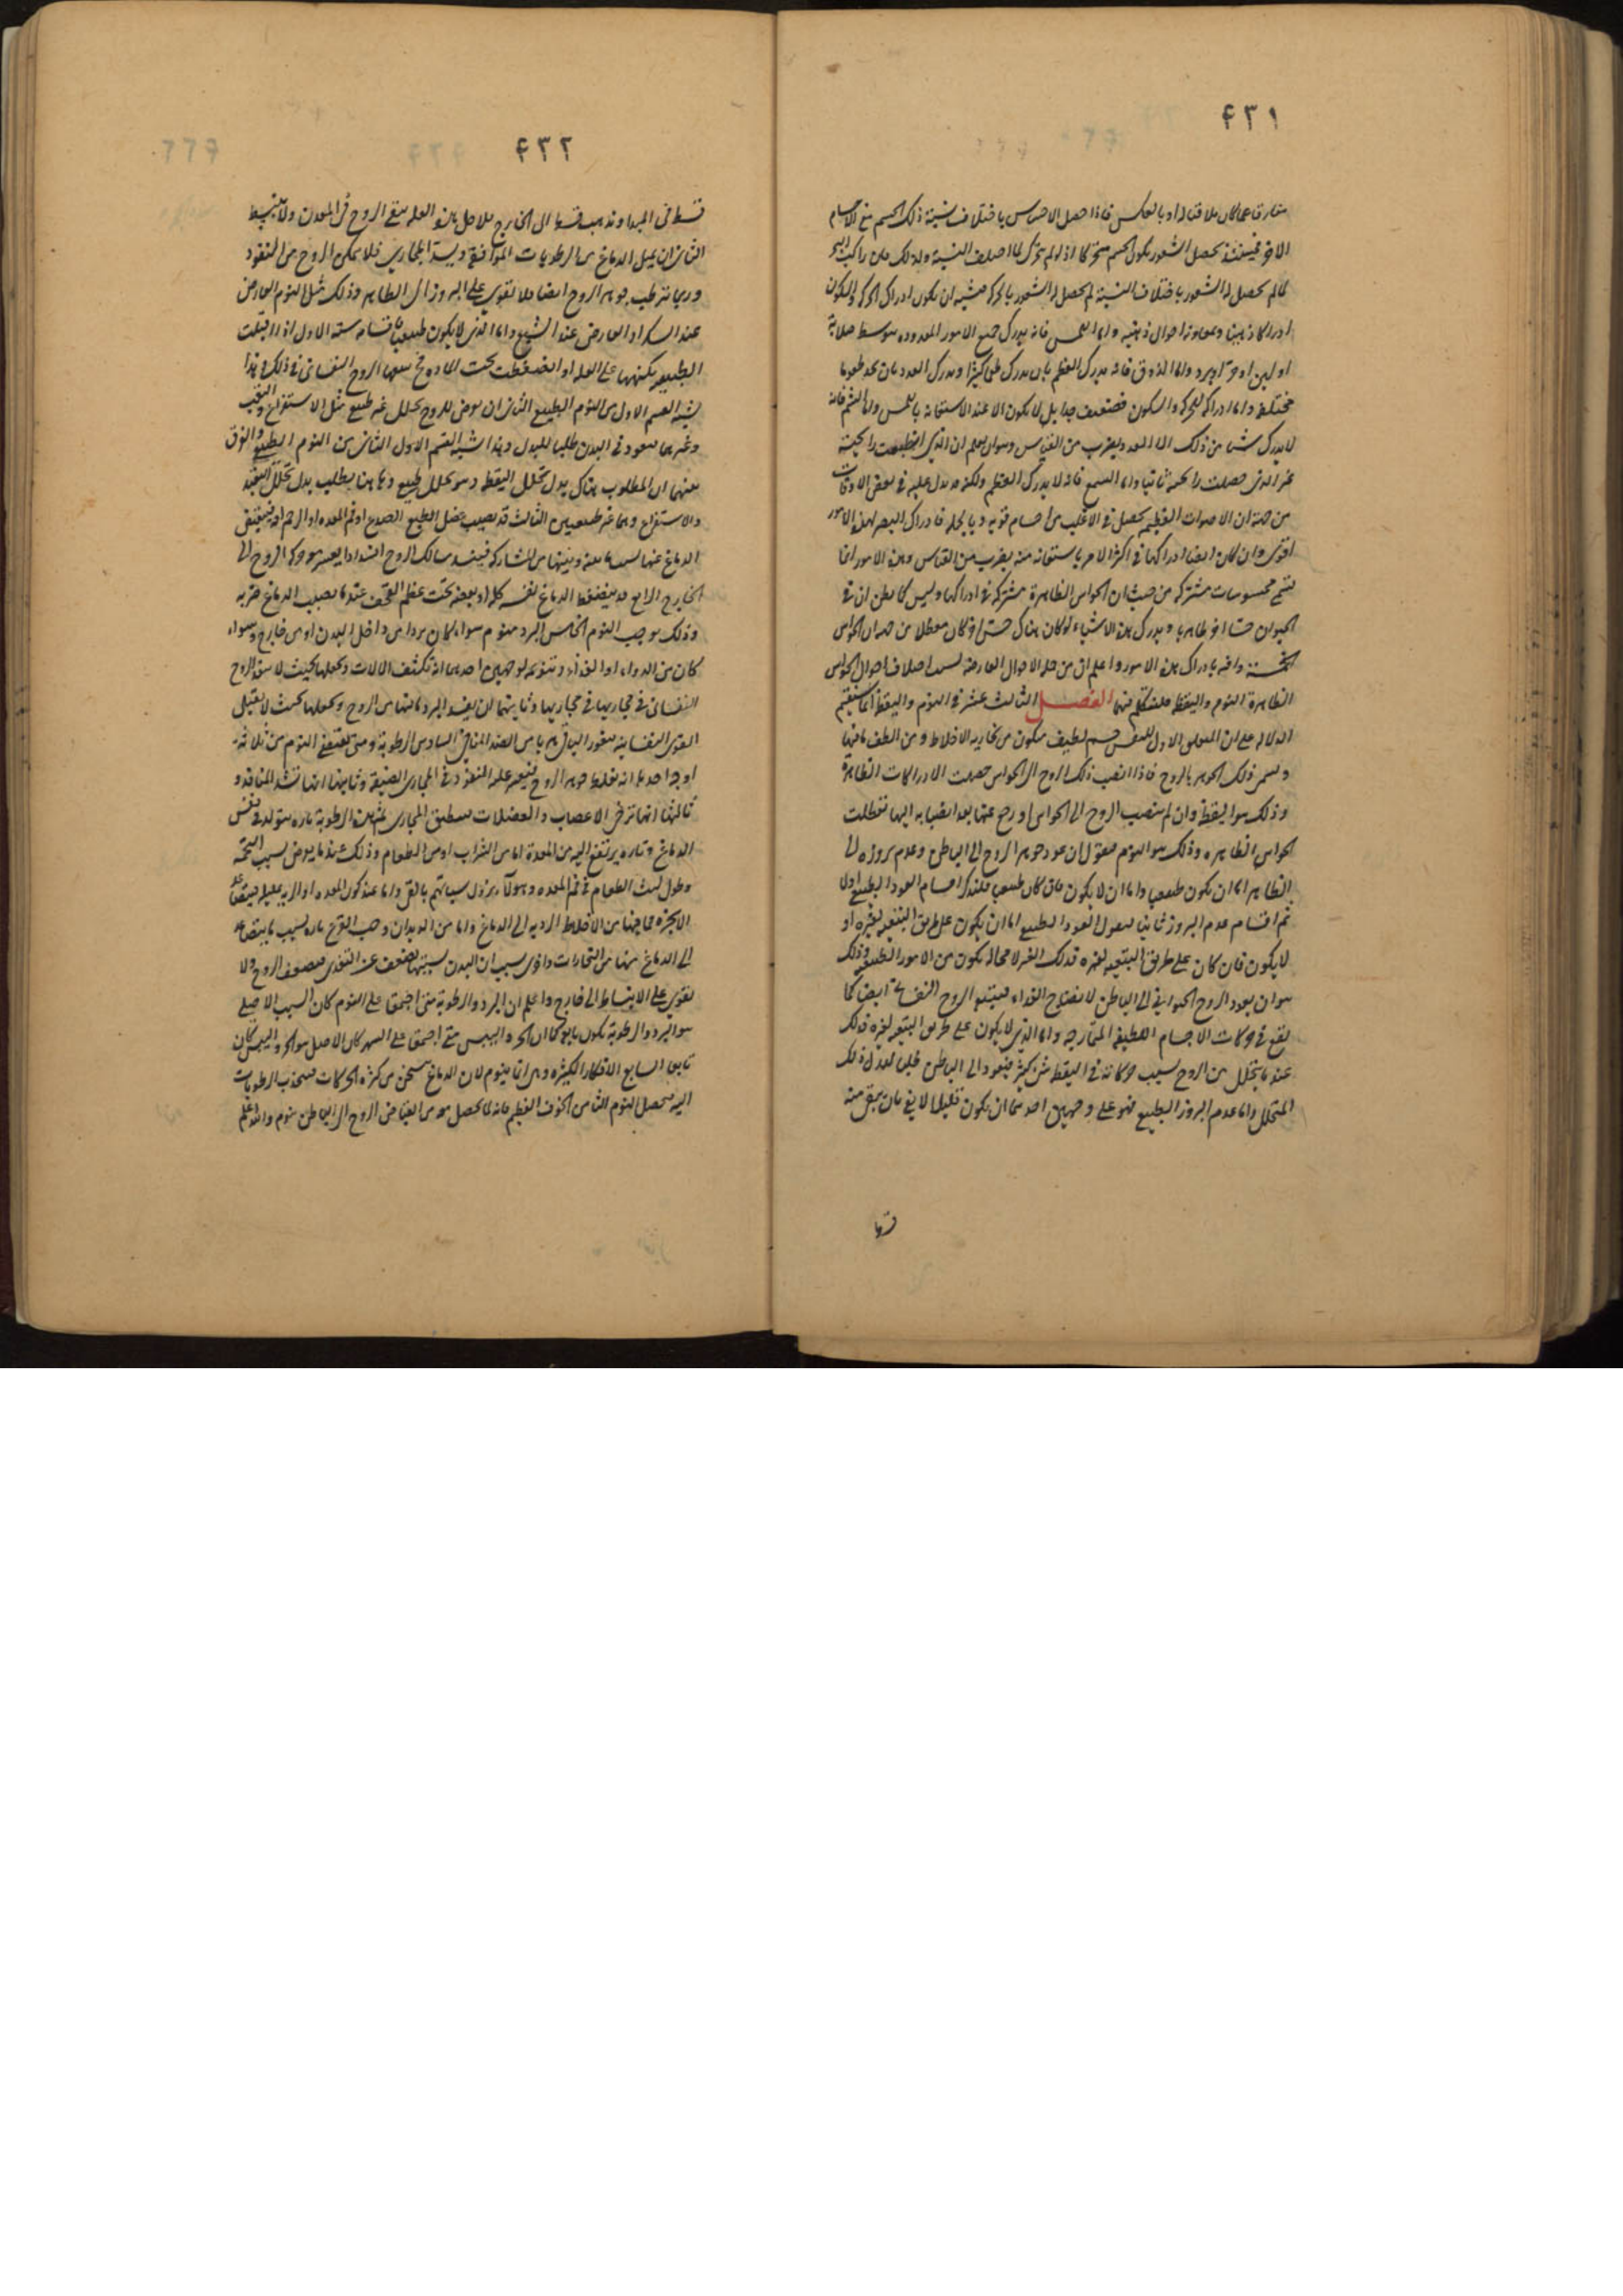 ٤٣١
مفارقا عما كان ملاقيا له او بالعكس فاذا حصل الاحساس باختلاف نسبة ذلك الجسم مع الاجسام
الاخر فحينئذ يحصل الشعور بكون الجسم متحركا اذ لو لم يتحرك لما اختلف النسبة ولذلك فان راكب البحر
لما لم يحصل له الشعور باختلاف النسبة لم يحصل له الشعور بالحركة فيشبه ان يكون ادراك الحركة والسكون
واما اللمس فانه يدرك جميع الامور المعدودة بتوسط صلابة
او لين او حر او برد واما الذوق فانه يدرك العظم بان يدرك طعما كثيرا ويدرك العدد بان يجد طعوما
مختلفة واما ادراكه للحركة والسكون فضعيف جدا بل لا يكون الا عند الاستعانة باللمس واما الشم فانه
لا يدرك شيئا من ذلك الا العدد وبضرب من القياس وهو ان يعلم ان الذي انقطعت رائحته
غير الذي حصلت رائحته ثانيا واما السمع فانه لا يدرك العظم ولكنه قد يدل عليه في بعض الاوقات
من جهة ان الاصوات العظيمة تحصل في الاغلب من اجسام قوية وبالجملة فادراك البصر لهذه الامور
اقوى وان كان ايضا ادراكها في اكثر الامر باستعانة منه بضرب من القياس وهذه الامور انما
تسمى محسوسات مشتركة من حيث ان الحواس الظاهرة مشتركة في ادراكها وليس كما يظن ان في
الحيوان حسا اخر ظاهرا يدرك هذه الاشياء لو كان هناك حس اخر كان معطلا من جهة ان الحواس
الخمسة وافية بادراك هذه الامور واعلم ان من جملة الاحوال العارضة بسبب اختلاف احوال الحواس
الظاهرة النوم واليقظة فلنتكلم فيهما الفصل الثالث عشر في النوم واليقظة انما يستقيم
الدلالة على ان المتعلق الاول للنفس جسم لطيف متكون من بخارية الاخلاط ومن الطف ما فيها
ويسمى ذلك الجوهر بالروح فاذا انصب ذلك الروح الى الحواس حصلت الادراكات الظاهرة
وذلك هو اليقظة وان لم ينصب الروح الى الحواس او رجع عنها بعد انصبابه اليها تعطلت
الحواس الظاهرة وذلك هو النوم فنقول ان عود جوهر الروح الى الباطن وعدم بروزه الى
الظاهر اما ان يكون طبيعيا واما ان لا يكون فان كان طبيعيا فلنذكر اقسام العود الطبيعي اولا
ثم اقسام عدم البروز ثانيا فنقول العود الطبيعي اما ان يكون على طريق التبعية لغيره او
لا يكون فان كان على طريق التبعية لغيره فذلك الغير لا محالة يكون من الامور الطبيعية وذلك
هو ان يعود الروح الحيواني الى الباطن لانضاج الغذاء فيتبعه الروح النفساني ايضا كما
يقع في حركات الاجسام اللطيفة المتمازجة واما الذي لا يكون على طريق التبعية لغيره فذلك
عند ما يتحلل من الروح بسبب حركاته في اليقظة شيء كثير فيعود الى الباطن طلبا لبدل ذلك
المتحلل واما عدم البروز الطبيعي فهو على وجهين احدهما ان يكون قليلا لا يفي بان يبقى منه
٤٣٢
قسط في المبدا ويذهب قسط الى الخارج فلاجل هذه العلة يبقى الروح في المعدن ولا ينبسط
الثاني ان يميل الدماغ من الرطوبات الموافقة ويسد المجاري فلا يمكن الروح من النفوذ
وربما ترطب جوهر الروح ايضا فلا تقوى على البروز الى الظاهر وذلك مثل النوم العارض
عند السكر او العارض عند الشبع واما الذي لا يكون طبيعيا فاقسامه ستة الاول اذا اقبلت
الطبيعة بكنهها على العلة او انضغطت تحت المادة تبعها الروح النفساني في ذلك وهذا
يشبه القسم الاول من النوم الطبيعي الثاني ان يعرض للروح تحلل غير طبيعي مثل الاستفراغ والتعب
وغيرهما فيعود في البدن طلبا للبدل وهذا يشبه القسم الاول الثاني من النوم الطبيعي والفرق
بينهما ان المطلوب هناك بدل تحلل اليقظة وهو تحلل طبيعي وهاهنا يطلب بدل تحلل التعب
والاستفراغ وهما غير طبيعيين الثالث قد يصيب عضل الصدغ او فم المعدة او الرحم اذى فينقبض
الدماغ عنها بسبب ما بينه وبينها من المشاركة فينسد مسالك الروح انسدادا يعسر معه حركة الروح الى
الخارج الرابع قد ينضغط الدماغ نفسه كله او بعضه تحت عظم القحف عند ما يصيب الدماغ ضربة
وذلك يوجب النوم الخامس البرد منوم سواء كان بردا من داخل البدن او من خارج وسواء
كان من الدواء او الغذاء وتنويمه لوجهين احدهما انه يكثف الالات ويجعلها بحيث لا ينفذ الروح
النفساني في مجاريها وثانيهما ان يفسد البرد مزاج الروح ويجعلها بحيث لا يقبل
القوى النفسانية السادس الرطوبة وهي تقتضي النوم من ثلاثة
اوجه احدها انه يغلظ جوهر الروح فيعسر عليه النفوذ في المجاري الضيقة وثانيها انها تسد المنافذ و
ثالثها انها ترخي الاعصاب والعضلات فينطبق المجاري ثم هذه الرطوبة تارة يتولد في نفس
الدماغ وتارة يرتفع اليه من المعدة اما من الشراب او من الطعام وذلك عند ما يعرض بسبب التخمة
وطول لبث الطعام في فم المعدة وهؤلاء يزول سباتهم بالقيء
الابخرة مما فيها من الاخلاط الردية الى الدماغ واما من الديدان وحب القرع تارة بسبب ما يتصاعد
الى الدماغ منها من البخارات واخرى بسبب ان البدن بسببها يضعف عن التغذي فيضعف الروح ولا
تقوى على الانبساط الى خارج واعلم ان البرد والرطوبة متى اجتمعا على النوم كان السبب الاصلي
هو البرد والرطوبة يكون تابعة كما ان الحر واليبس متى اجتمعا على السهر كان الاصل هو الحر واليبس كان
تابعا السابع الافكار الكثيرة وهي انما ينوم لان الدماغ يسخن من كثرة الحركات فينجذب الرطوبات
اليه فيحصل النوم الثامن الخوف العظيم فانه لما يحصل معه من انقباض الروح الى الباطن ينوم والله اعلم